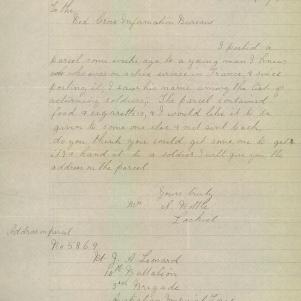 To the
Red Cross Information Bureau
I posted a
parcel some weeks ago to a young man I knew
who was on active service in France, & since
posting it, I saw his name among the list of
returning soldiers. The parcel contained
food & cigarettes, & I would like it to be
given to some one else & not sent back,
do you think you could get some one to get
it & hand it to a soldier I will give you the
address on the parcel
Yours truly
N. Wottle
Lochiel
Address on parcel
No 5869
Pt J. A Lenard
10th Battalion
3rd Brigade
Australian Imperial Force